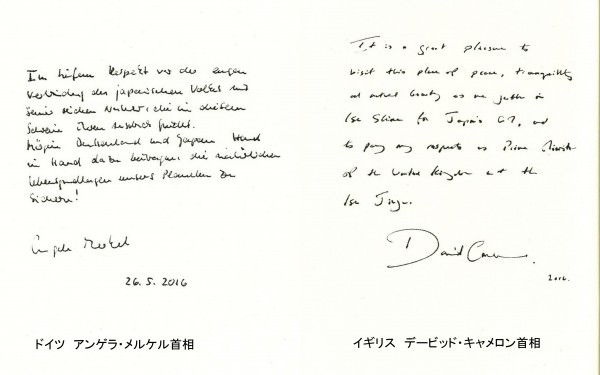 Im tiefem Respekt vor der engen
Verbindung des japanischen Volkes mit
seine reichen Natur, die in diesem
Schrein ihren Ausdruck findet.
Mögen Deutschland und Japan Hand
in Hand dazu beitragen die natürlichen
Lebensgrundlagen unseres Planeten zu
sichern!
Angela Merkel
26.5.2016
ドイツ アンゲラ・メルケル首相
It is a great pleasure to
visit this place of peace, tranquillity
and natural beauty as we gather in
Ise Shima for Japan's G7, and
to pay my respects as Prime Minister
of the United Kingdom at the
Ise Jingu.
David Cameron
2016.
イギリス デービッド・キャメロン首相